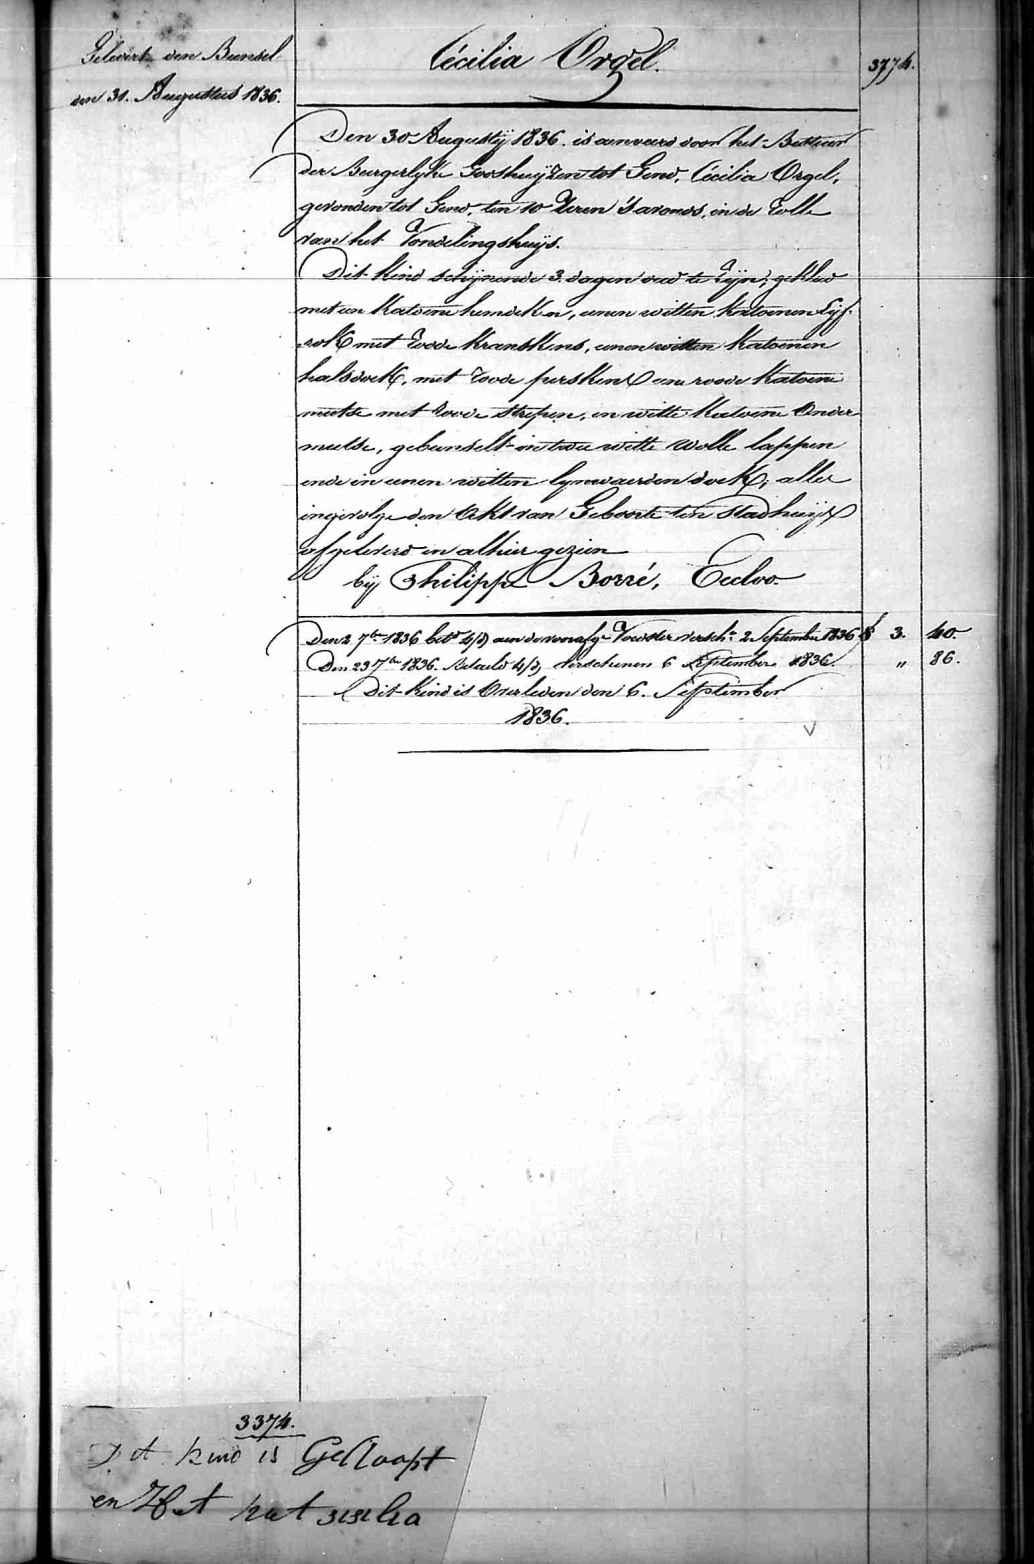 Gelevert den Bunsel
den 31. Augustus 1836.
Cécilia Orgel.
3774.
Den 30 Augustÿ 1836. is aenveerd door het Bestuur
der Burgerlyke Godshuÿzen tot Gend, Cécilia Orgel,
gevonden tot Gend, ten 10 Uren 's avonds, in de Rolle
van het Vondelingshuÿs.
Dit kind schÿnende 3. dagen oud te Zÿn, gekleed
met een Katoene hemdeken, eenen witten Katoenen Lÿf-
rok met Roode Kranskens, eenen witten Katoenen
halsdoek, met Roode perskens, eene roode Katoene
mutse met Roode strepen, en witte Katoene Onder
mutse, gebunselt in twee witte Wolle lappen
ende in eenen witten lynwaerden doek, alles
ingevolge den Akt van Geboorte ten Stadhuÿse
afgeleverd en alhier gezien
bÿ Philippe Borré, Eecloo.
Den 2 7bre 1836 betd 4/3 aen de voorafge Voedster versche 2 September 1836 f 3. 40.
Den 23 7bre 1836. Betaeld 4/3, verschenen 6 September 1836. " 86.
Dit kind is Overleden den 6. September
1836.
3374.
Dit kind is Gedoopt
en Het hat sisilia